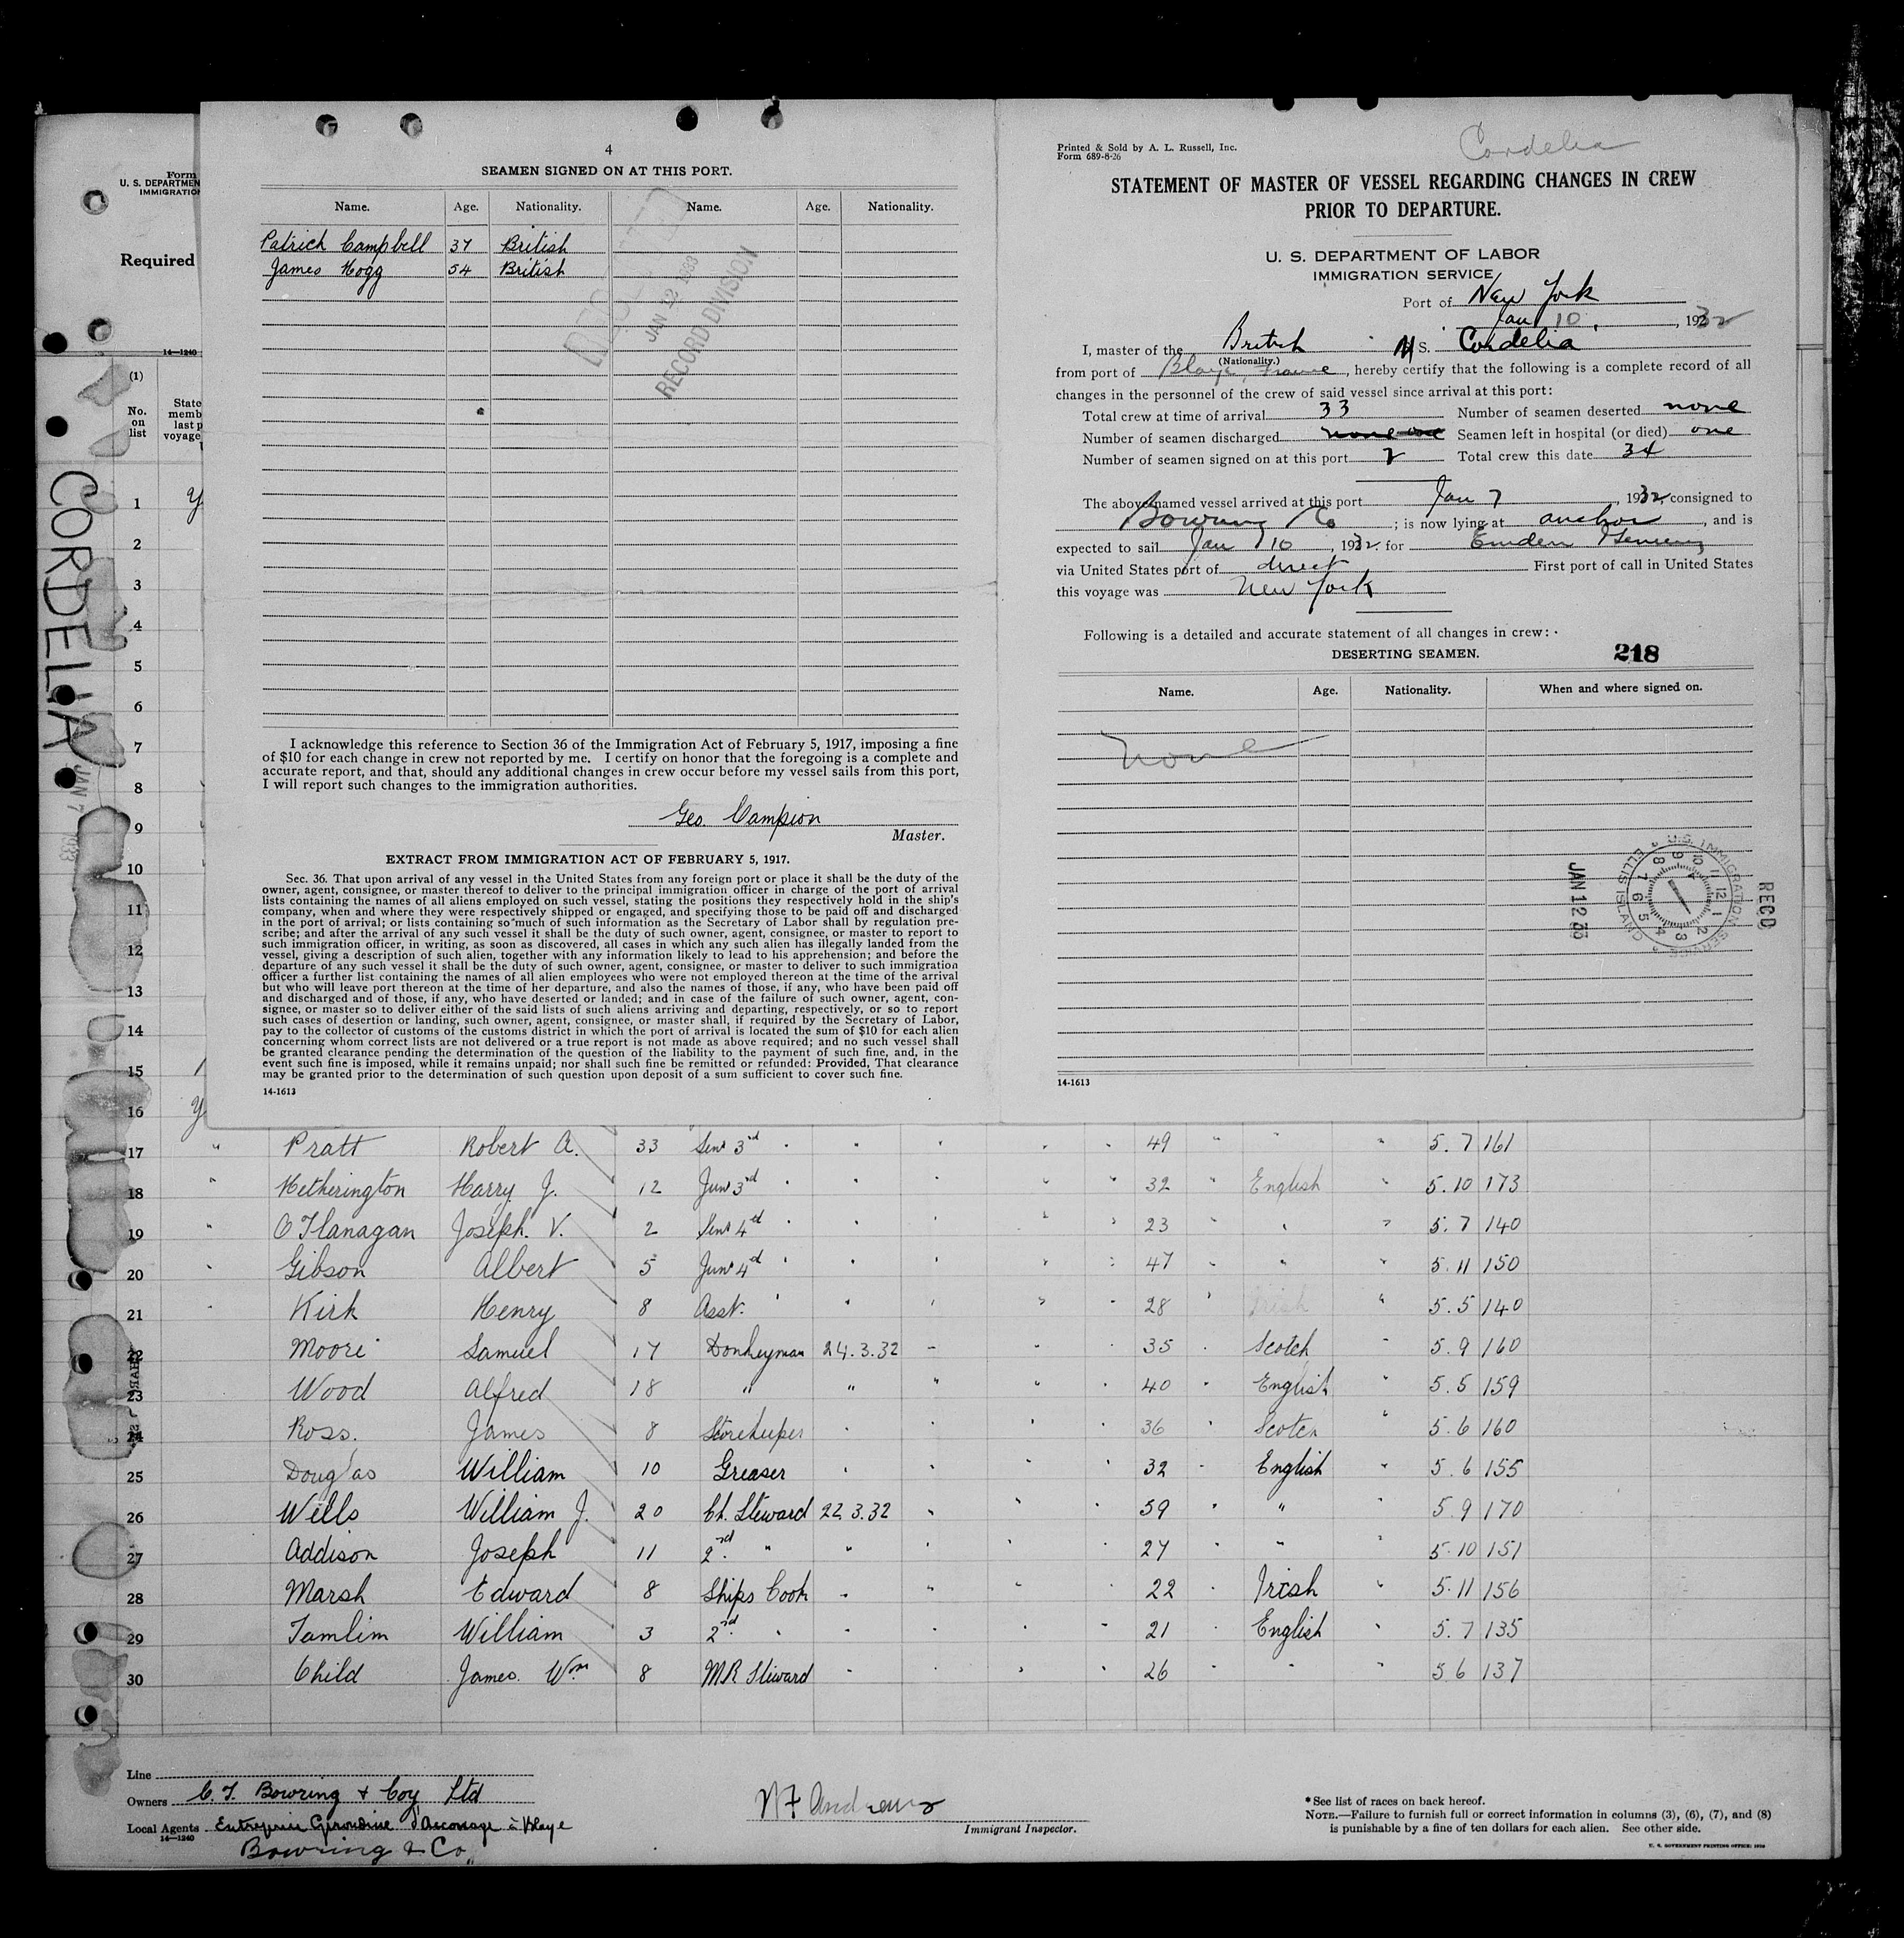 Form
U. S. DEPARTMEN
IMMIGRATIO
Required
14—1240
(1)
No.
on
list
State
memb
last p
voyage
CORDELIA
JAN 7 1933
1
2
3
4
5
6
7
8
9
10
11
12
13
14
15
16
4
SEAMEN SIGNED ON AT THIS PORT.
Name. Age. Nationality. Name. Age. Nationality.
Patrick Campbell 37 British
James Hogg 54 British
JAN 12 1933
RECORD DIVISION
I acknowledge this reference to Section 36 of the Immigration Act of February 5, 1917, imposing a fine
of $10 for each change in crew not reported by me. I certify on honor that the foregoing is a complete and
accurate report, and that, should any additional changes in crew occur before my vessel sails from this port,
I will report such changes to the immigration authorities.
Geo. Campion
Master.
EXTRACT FROM IMMIGRATION ACT OF FEBRUARY 5, 1917.
Sec. 36. That upon arrival of any vessel in the United States from any foreign port or place it shall be the duty of the
owner, agent, consignee, or master thereof to deliver to the principal immigration officer in charge of the port of arrival
lists containing the names of all aliens employed on such vessel, stating the positions they respectively hold in the ship's
company, when and where they were respectively shipped or engaged, and specifying those to be paid off and discharged
in the port of arrival; or lists containing so much of such information as the Secretary of Labor shall by regulation pre-
scribe; and after the arrival of any such vessel it shall be the duty of such owner, agent, consignee, or master to report to
such immigration officer, in writing, as soon as discovered, all cases in which any such alien has illegally landed from the
vessel, giving a description of such alien, together with any information likely to lead to his apprehension; and before the
departure of any such vessel it shall be the duty of such owner, agent, consignee, or master to deliver to such immigration
officer a further list containing the names of all alien employees who were not employed thereon at the time of the arrival
but who will leave port thereon at the time of her departure, and also the names of those, if any, who have been paid off
and discharged and of those, if any, who have deserted or landed; and in case of the failure of such owner, agent, con-
signee, or master so to deliver either of the said lists of such aliens arriving and departing, respectively, or so to report
such cases of desertion or landing, such owner, agent, consignee, or master shall, if required by the Secretary of Labor,
pay to the collector of customs of the customs district in which the port of arrival is located the sum of $10 for each alien
concerning whom correct lists are not delivered or a true report is not made as above required; and no such vessel shall
be granted clearance pending the determination of the question of the liability to the payment of such fine, and, in the
event such fine is imposed, while it remains unpaid; nor shall such fine be remitted or refunded: Provided, That clearance
may be granted prior to the determination of such question upon deposit of a sum sufficient to cover such fine.
14-1613
Printed & Sold by A. L. Russell, Inc.
Form 689-8-26
Cordelia
STATEMENT OF MASTER OF VESSEL REGARDING CHANGES IN CREW
PRIOR TO DEPARTURE.
U. S. DEPARTMENT OF LABOR
IMMIGRATION SERVICE
Port of New York
Jan 10, 1932
I, master of the British M S. Cordelia
(Nationality.)
from port of Blaye, France, hereby certify that the following is a complete record of all
changes in the personnel of the crew of said vessel since arrival at this port:
Total crew at time of arrival 33 Number of seamen deserted none
Number of seamen discharged none Seamen left in hospital (or died) one
Number of seamen signed on at this port 2 Total crew this date 34
The above-named vessel arrived at this port Jan 7, 1932, consigned to
Bowring & Co; is now lying at anchor, and is
expected to sail Jan 10, 1932. for Emden Germany
via United States port of direct First port of call in United States
this voyage was New York
Following is a detailed and accurate statement of all changes in crew:
DESERTING SEAMEN. 218
Name. Age. Nationality. When and where signed on.
none
U.S. IMMIGRATION SERVICE ELLIS ISLAND
RECD
JAN 12 33
14-1613
17 " Pratt Robert A. 33 Senr 3rd " " " " " 49 " " " 5.7 161
18 " Hetherington Harry J. 12 Junr 3rd " " " " " 32 " English " 5.10 173
19 " O'Flanagan Joseph. V. 2 Senr 4th " " " " " 23 " " " 5.7 140
20 " Gibson Albert 5 Junr 4th " " " " " 47 " " " 5.11 150
21 " Kirk Henry 8 Asst. " " " " " 28 " Irish " 5.5 140
22 Moore Samuel 17 Donkeyman 24.3.32 " " " 35 " Scotch " 5.9 160
23 Wood Alfred 18 " " " " " 40 " English " 5.5 159
24 Ross. James 8 Storekeeper " " " " 36 " Scotch " 5.6 160
25 Douglas William 10 Greaser " " " " 32 " English " 5.6 155
26 Wells William J. 20 Ch. Steward 22.3.32 " " " 59 " " " 5.9 170
27 Addison Joseph 11 2nd " " " " " 27 " " " 5.10 151
28 Marsh Edward 8 Ships Cook " " " " 22 " Irish " 5.11 156
29 Tamlim William 3 2nd " " " " " 21 " English " 5.7 135
30 Child James. Wm 8 M.R. Steward " " " " 26 " " " 5.6 137
Line
Owners C. T. Bowring & Coy Ltd
Local Agents Entreprise Girondine d'Acconage à Blaye
14—1240
Bowring & Co.
Andrews
Immigrant Inspector.
*See list of races on back hereof.
NOTE.—Failure to furnish full or correct information in columns (3), (6), (7), and (8)
is punishable by a fine of ten dollars for each alien. See other side.
U. S. GOVERNMENT PRINTING OFFICE